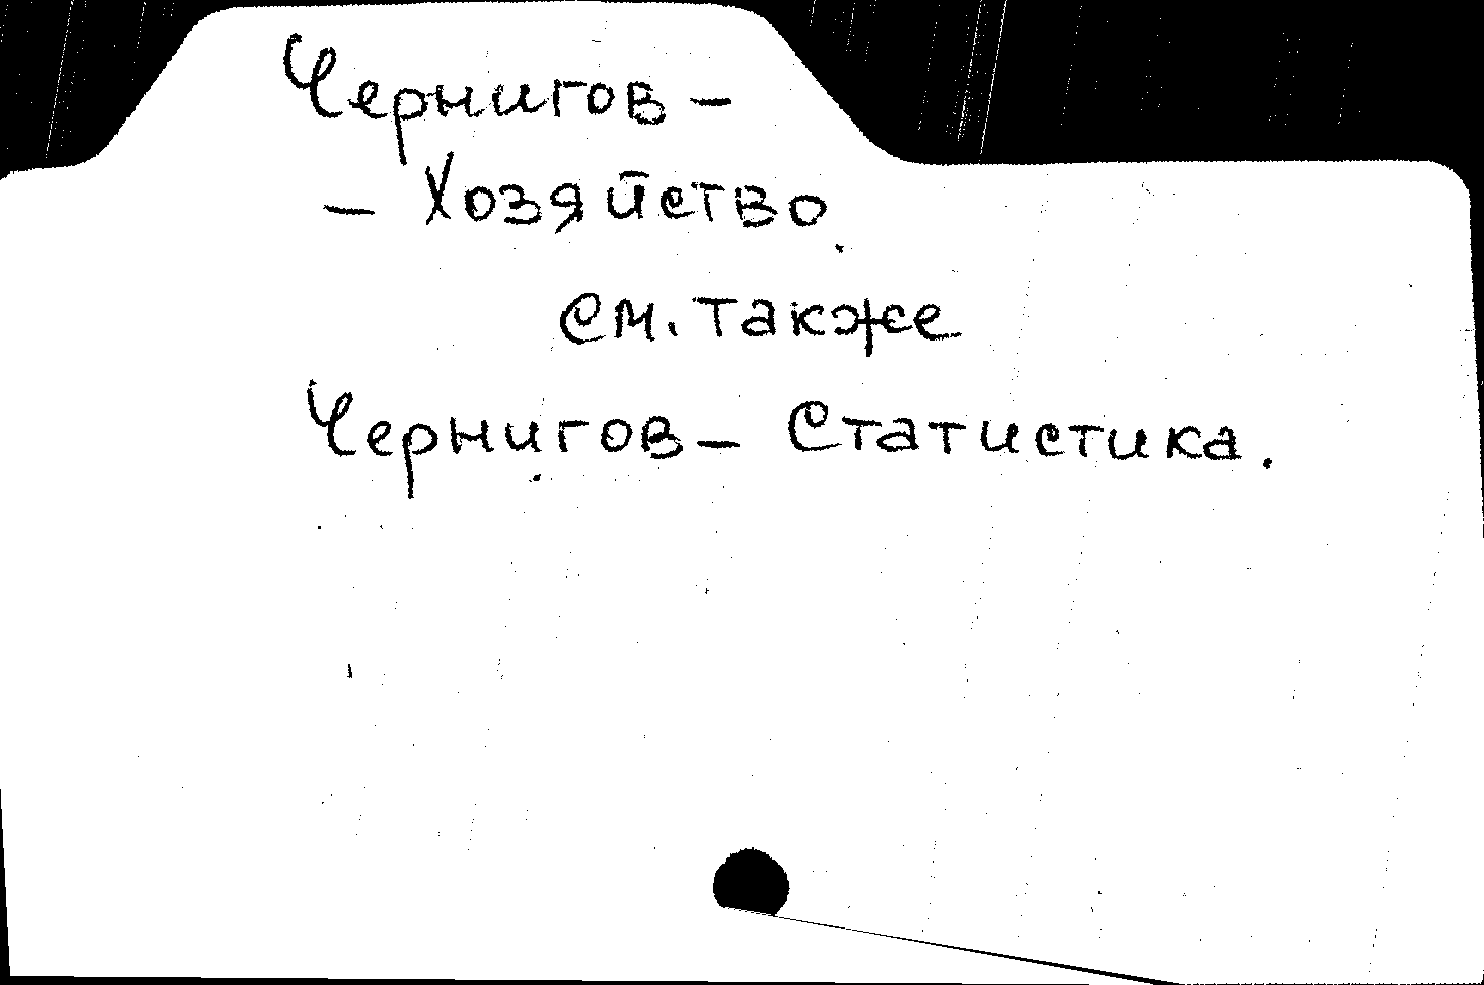 Чернигов –
– Хозяйство.
см. также
Чернигов – Статистика.